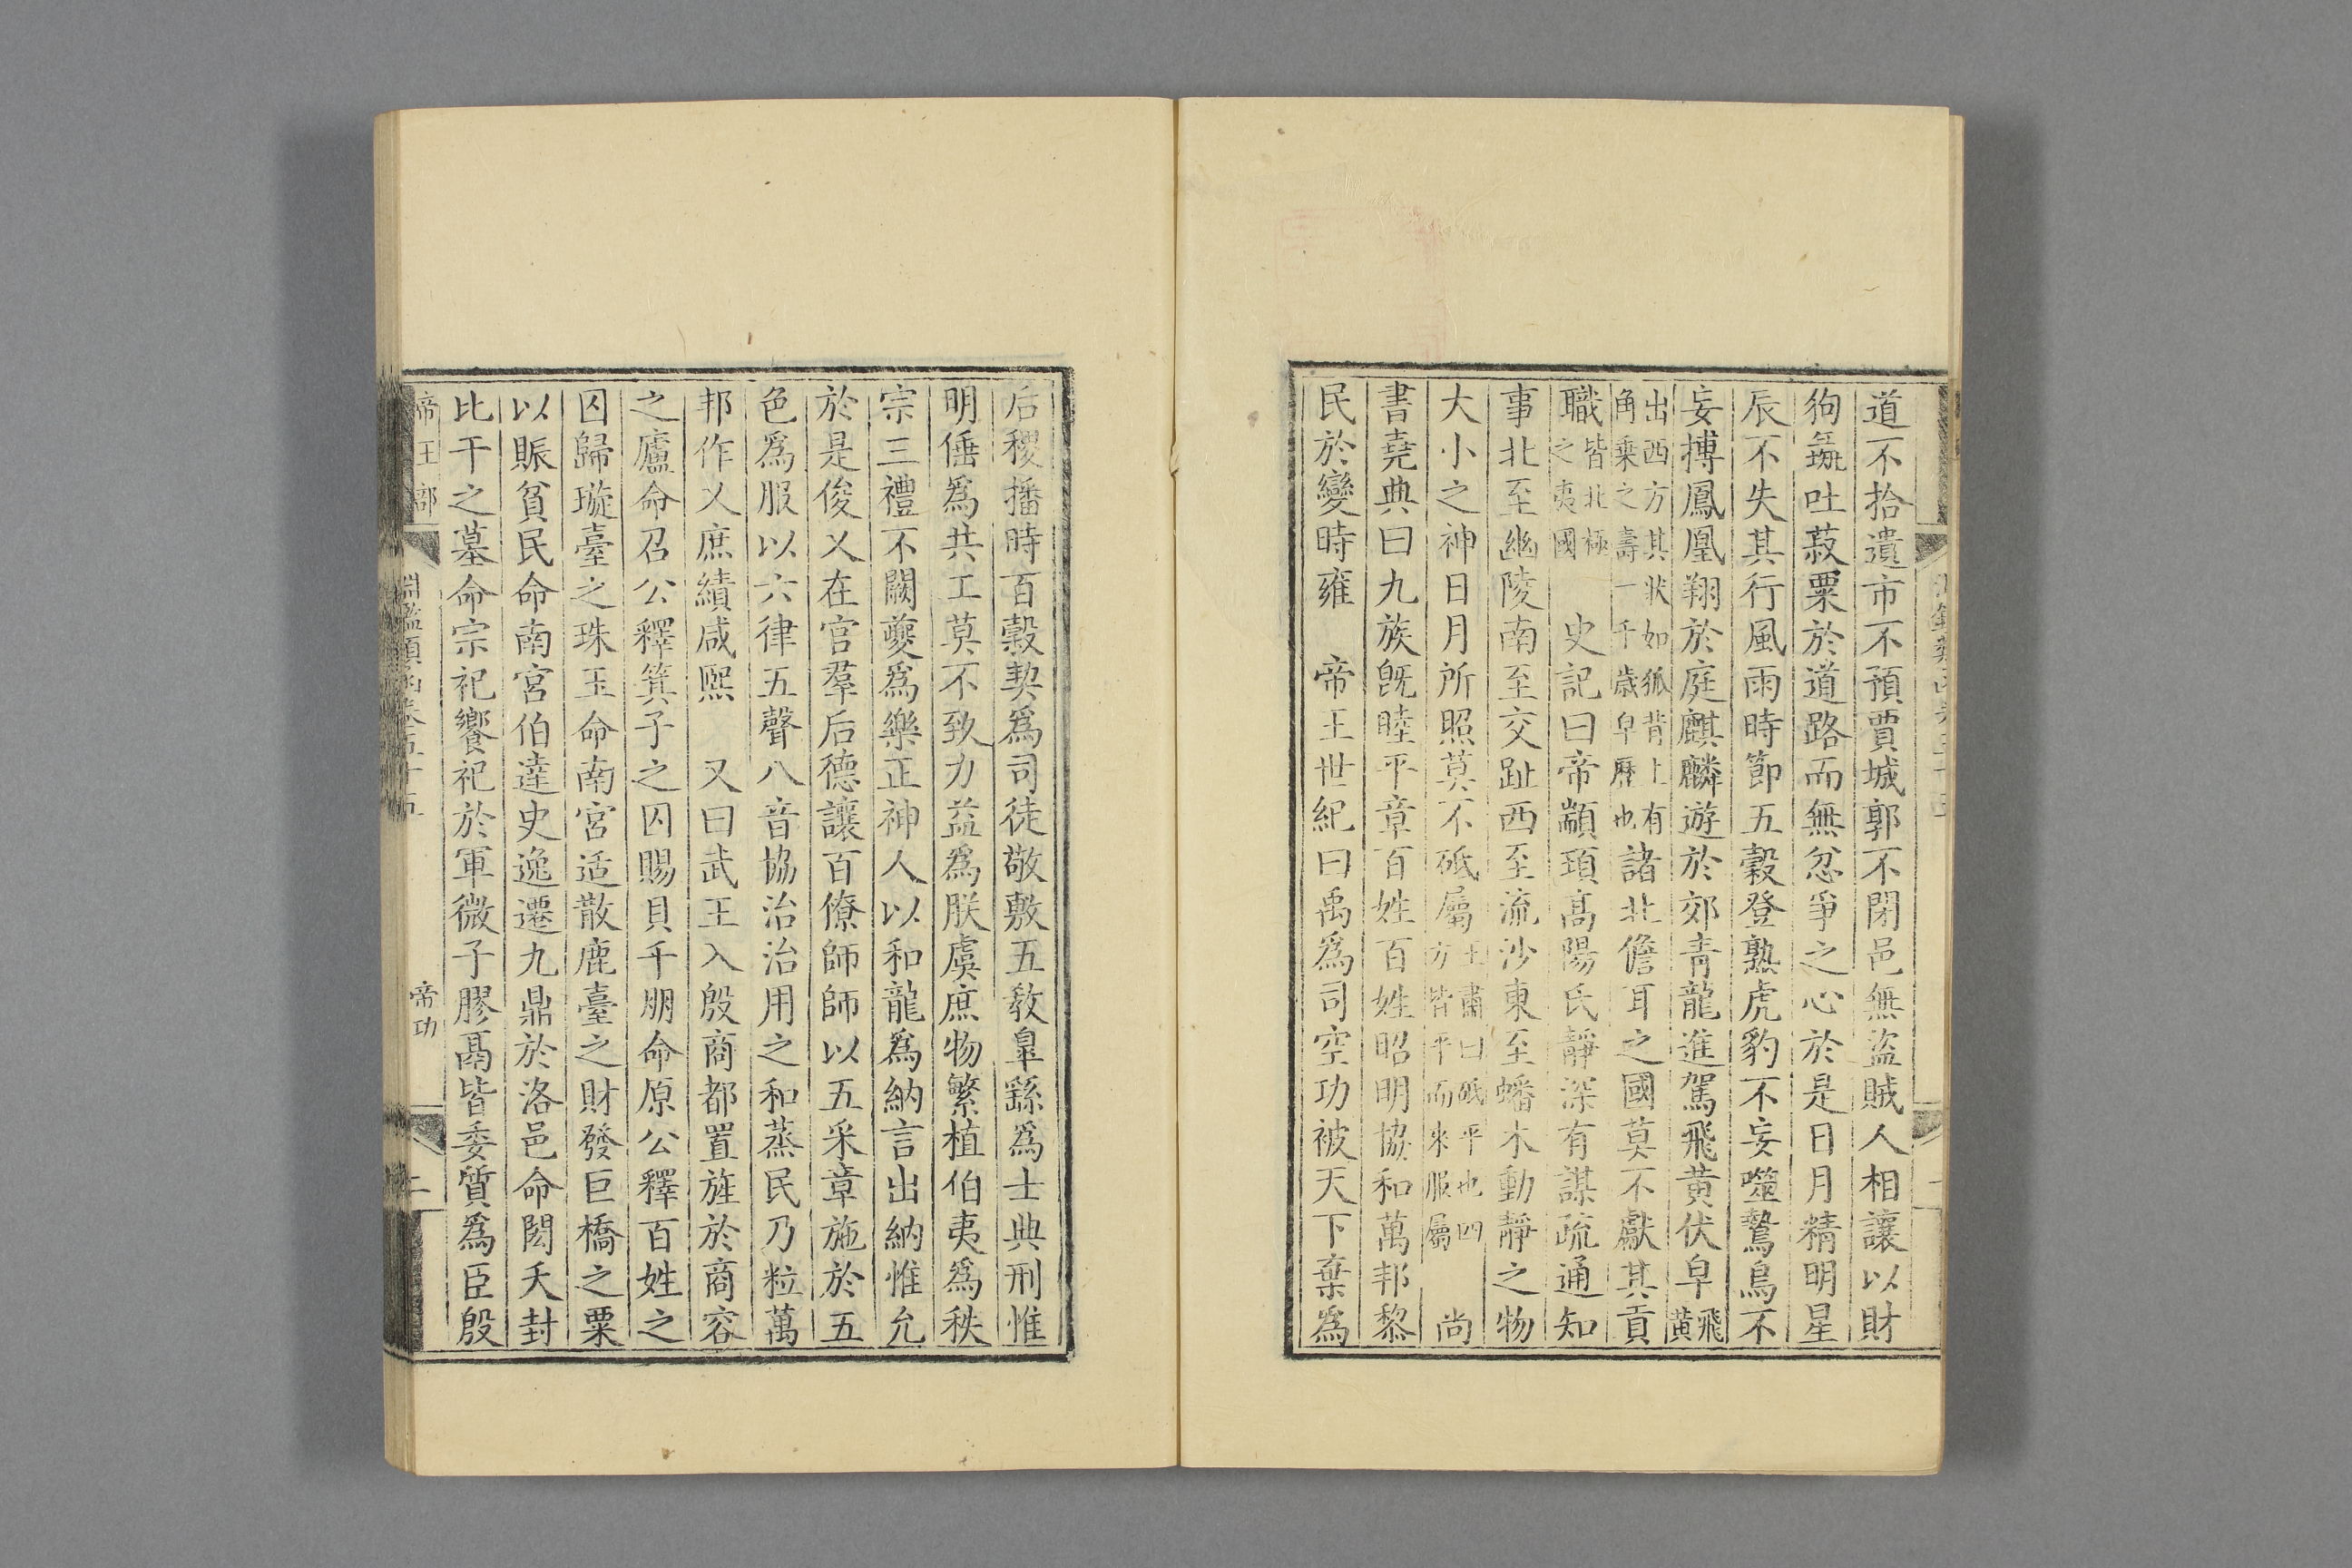 道不拾遺市不預賈城郭不閉邑無盜賊人相讓以財
狗彘吐菽粟於道路而無忿爭之心於是日月精明星
辰不失其行風雨時節五穀登熟虎豹不妄噬鷙鳥不
妄搏鳳凰翔於庭麒麟遊於郊青龍進駕飛黃伏皁飛黃
出西方其狀如狐背上有
角乘之壽一千歲皁歷也
諸北儋耳之國莫不獻其貢
職皆北極
之夷國
史記曰帝顓頊髙陽氏靜深有謀疏通知
事北至幽陵南至交趾西至流沙東至蟠木動靜之物
大小之神日月所照莫不砥屬王肅曰砥平也四
方皆平而來服屬
尚
書堯典曰九族旣睦平章百姓百姓昭明協和萬邦黎
民於變時雍　帝王世紀曰禹爲司空功被天下棄爲
后稷播時百穀契爲司徒敬敷五敎皐繇爲士典刑惟
明倕爲共工莫不致力益爲朕虞庶物繁植伯夷爲秩
宗三禮不闕夔爲樂正神人以和龍爲納言出納惟允
於是俊乂在官羣后德讓百僚師師以五采章施於五
色爲服以六律五聲八音協治治用之和蒸民乃粒萬
邦作乂庶績咸熙　又曰武王入殷商都置旌於商容
之廬命召公釋箕子之囚賜貝千朋命原公釋百姓之
囚歸璇臺之珠玉命南宮适散鹿臺之財發巨橋之粟
以賑貧民命南宮伯達史逸遷九鼎於洛邑命閎夭封
比干之墓命宗祀饗祀於軍微子膠鬲皆委質爲臣殷
帝王部
淵鑑類函卷五十五
帝功
二